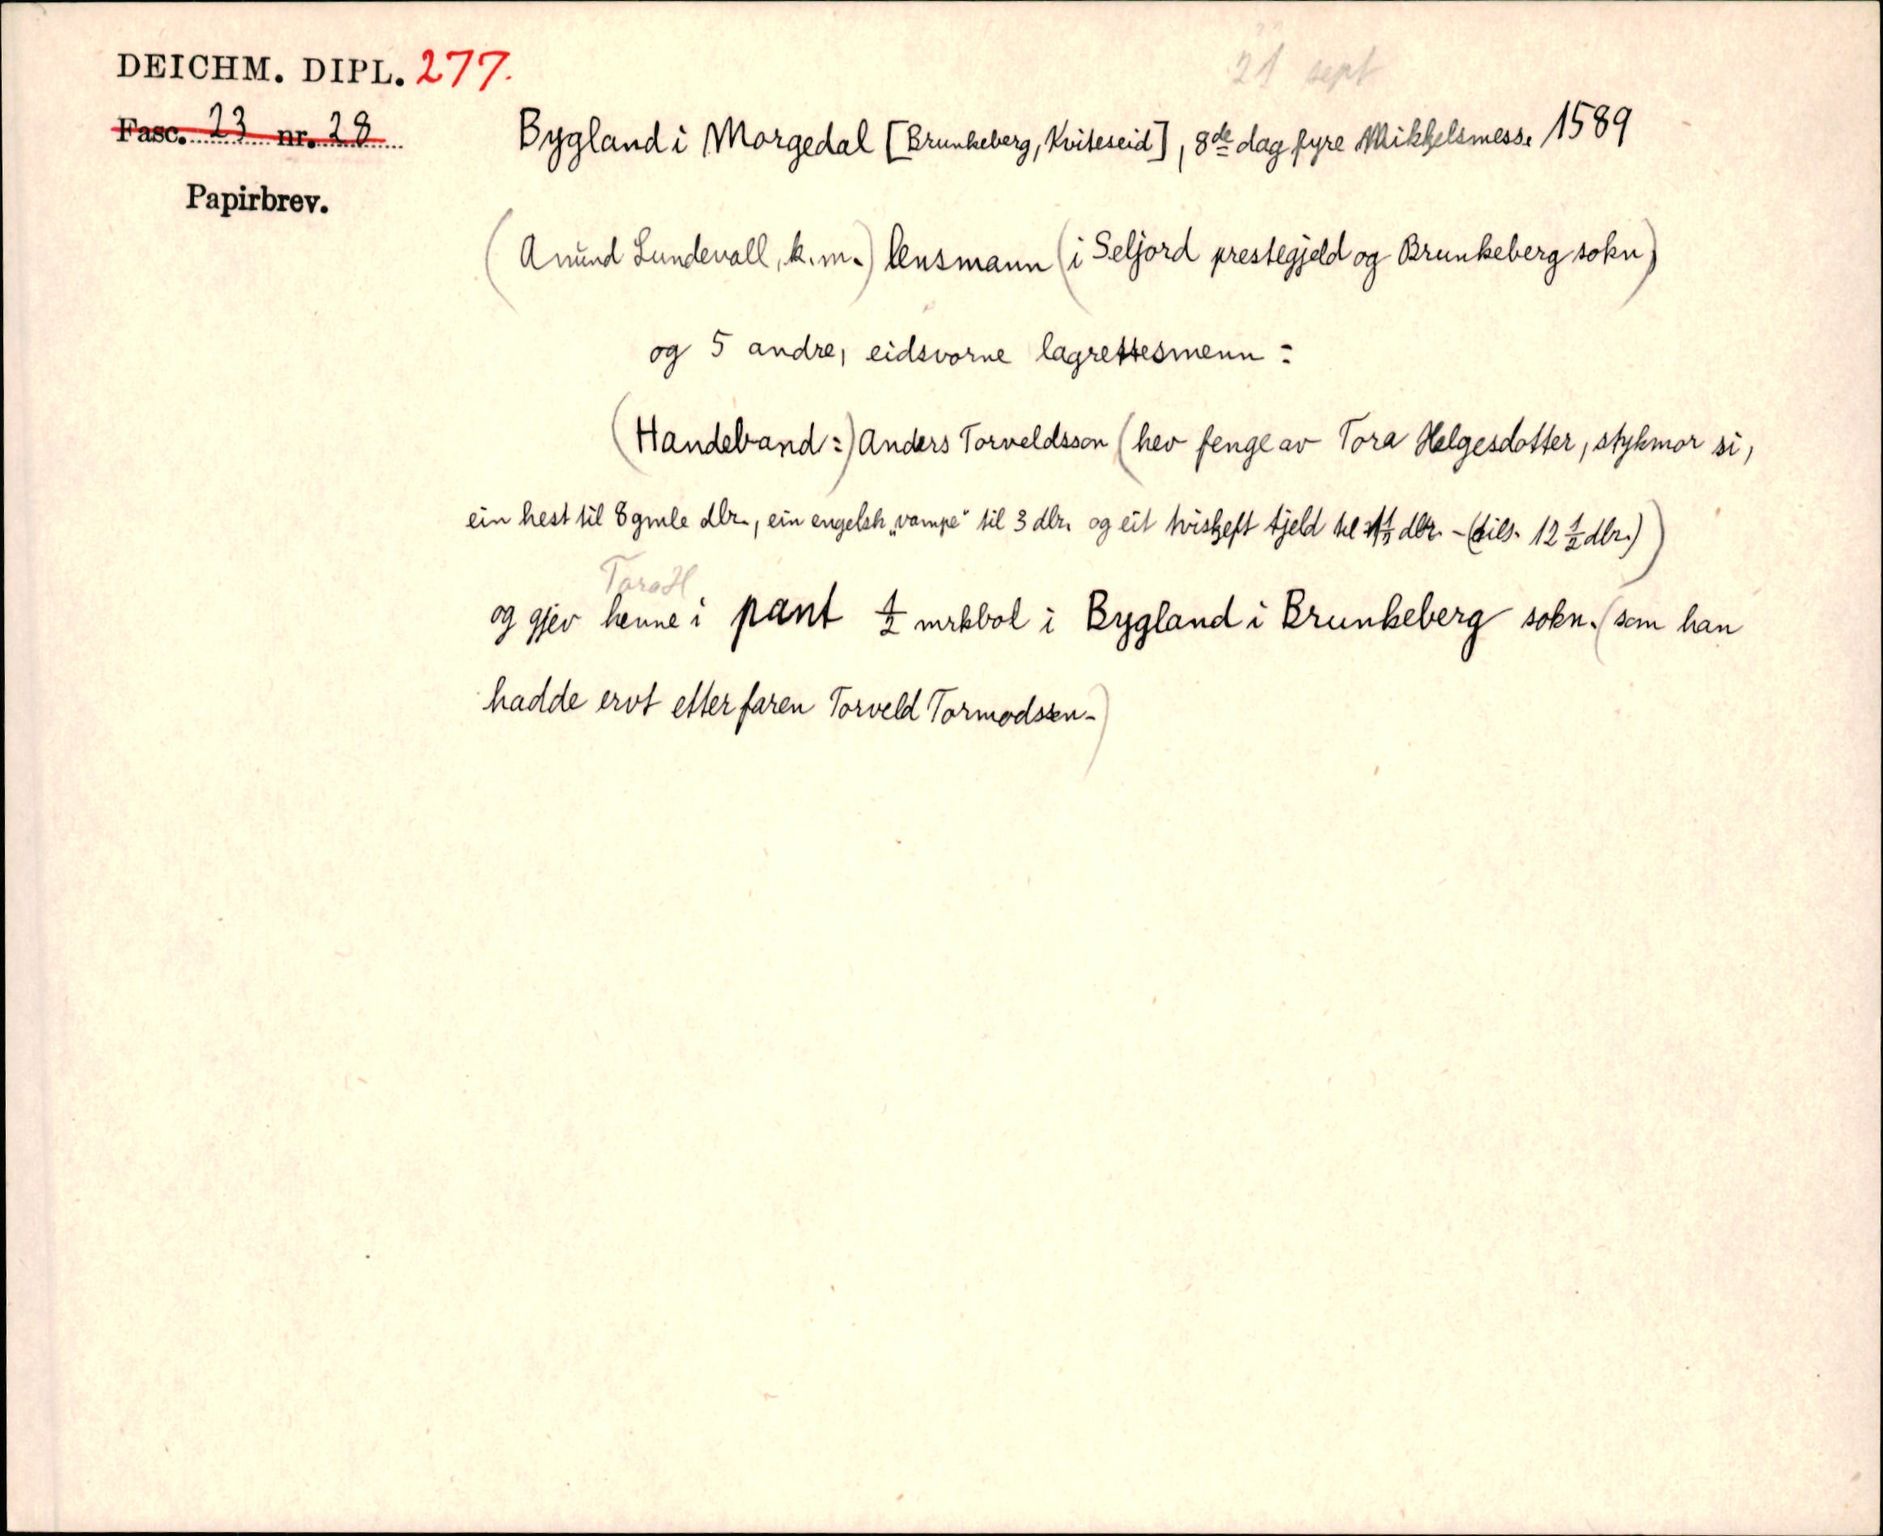 DEICHM. DIPL. 277.
21 sept
Fasc. 23 nr. 28
Bygland i Morgedal [Brunkeberg, Kviteseid], 8de dag fyre Mikkelsmess. 1589
Papirbrev.
(Anund Lundevall, k.m.) lensmann (i Seljord prestegjeld og Brunkeberg sokn)
og 5 andre, eidsvorne lagrettesmenn:
(Handeband:) Anders Torveldsson (hev fenge av Tora Helgesdotter, stykmor si,
ein hest til 8 gmle dlr., ein engelsk „vampe" til 3 dlr. og eit tviskjeft tjeld til dlr. - (tils. 12 1/2 dlr.))
Tora H
og gjev henne i pant 1/2 mrkbol i Bygland i Brunkeberg sokn. (som han
hadde ervt etter faren Torveld Tormodssen-)